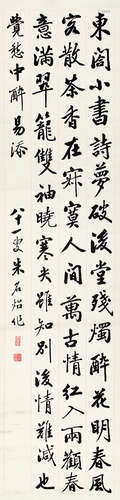 東閣小書詩夢破後堂殘燭醉花明春風
客散茶香在寂寞人間萬古情紅入兩顴春
意滿翠籠雙袖曉寒尖雖知別後情難減也
覺愁中醉易添
八十一叟朱石怡作